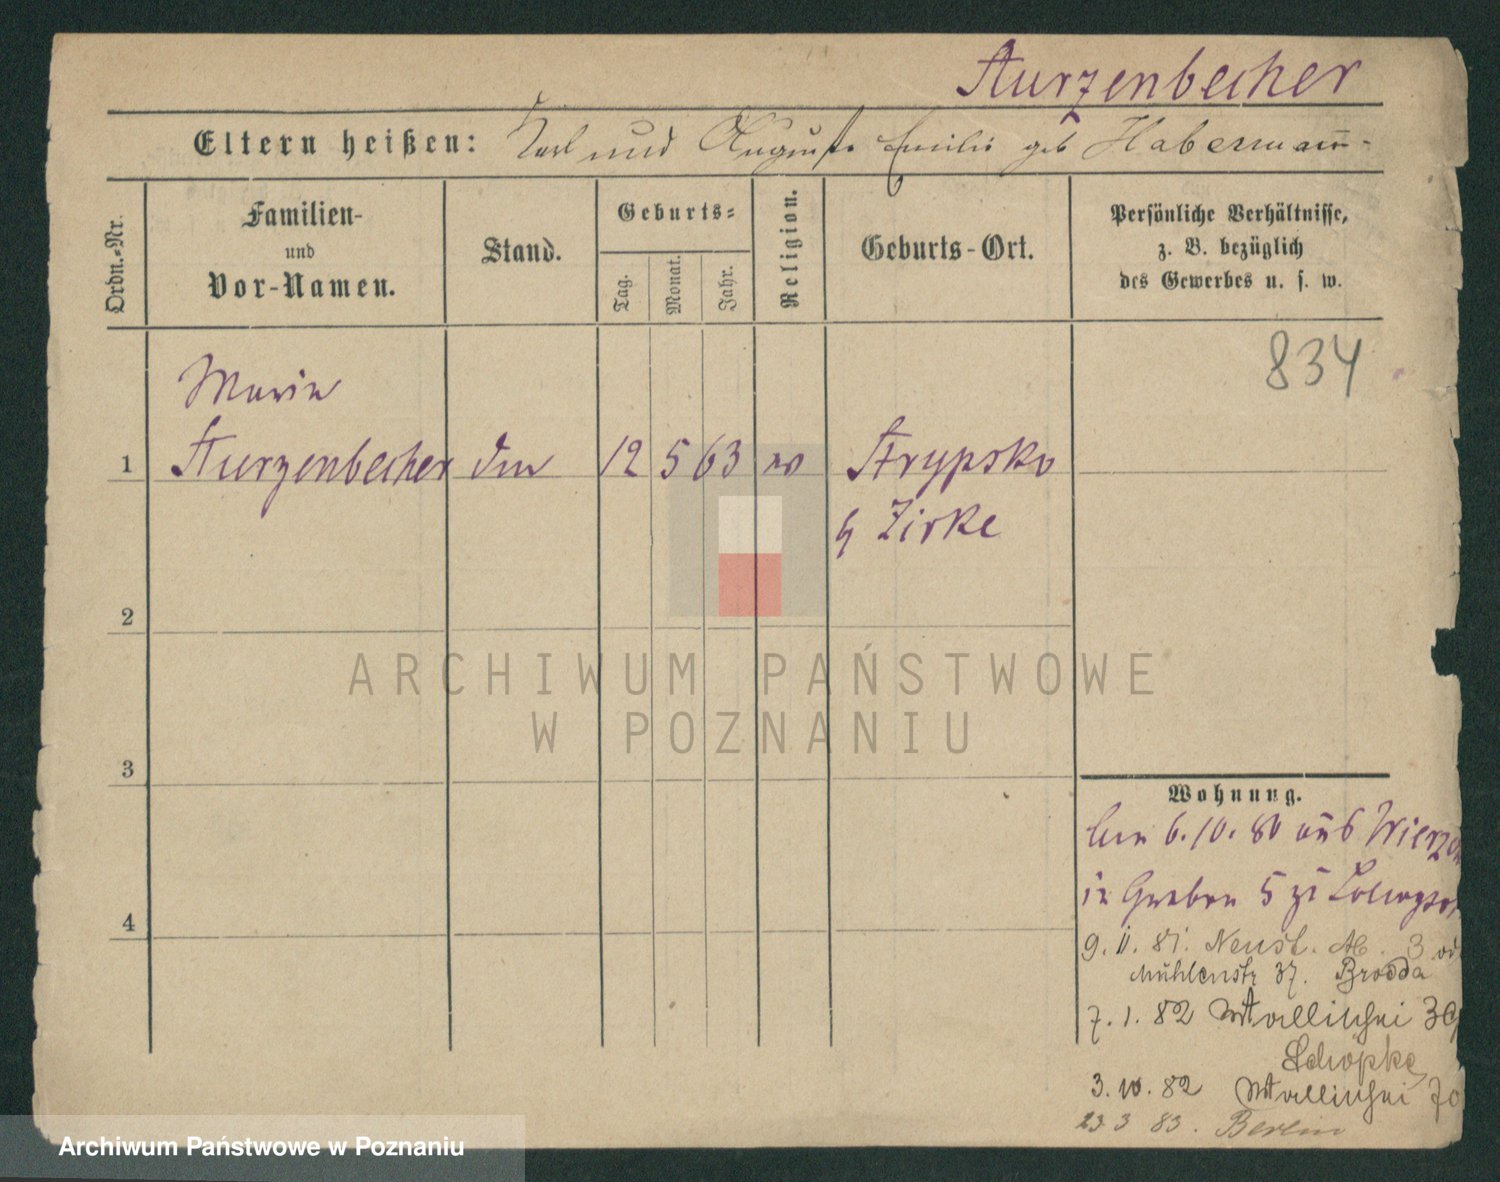 Sturzenbecher
Eltern heißen: Karl und Auguste Emilie geb Habermann
Ordn.-Nr.
Familien-
und
Vor-Namen.
Stand.
Geburts-
Tag.
Monat.
Jahr.
Religion.
Geburts-Ort.
Persönliche Verhältnisse,
z. B. bezüglich
des Gewerbes u. s. w.
834
Maria
1 Sturzenbecher 12 5 63 Strypsko
Zirke
2
3
4
ARCHIWUM PAŃSTWOWE
W POZNANIU
Wohnung.
6.10. 80 aus
in Graben 5
9. 11. 81. Neust. 3
Mühlenstr 37. Brodda
7. 1. 82 Wallischei
Schöpke
3. 10. 82 Wallischei 70
23 3 83. Berlin
Archiwum Państwowe w Poznaniu